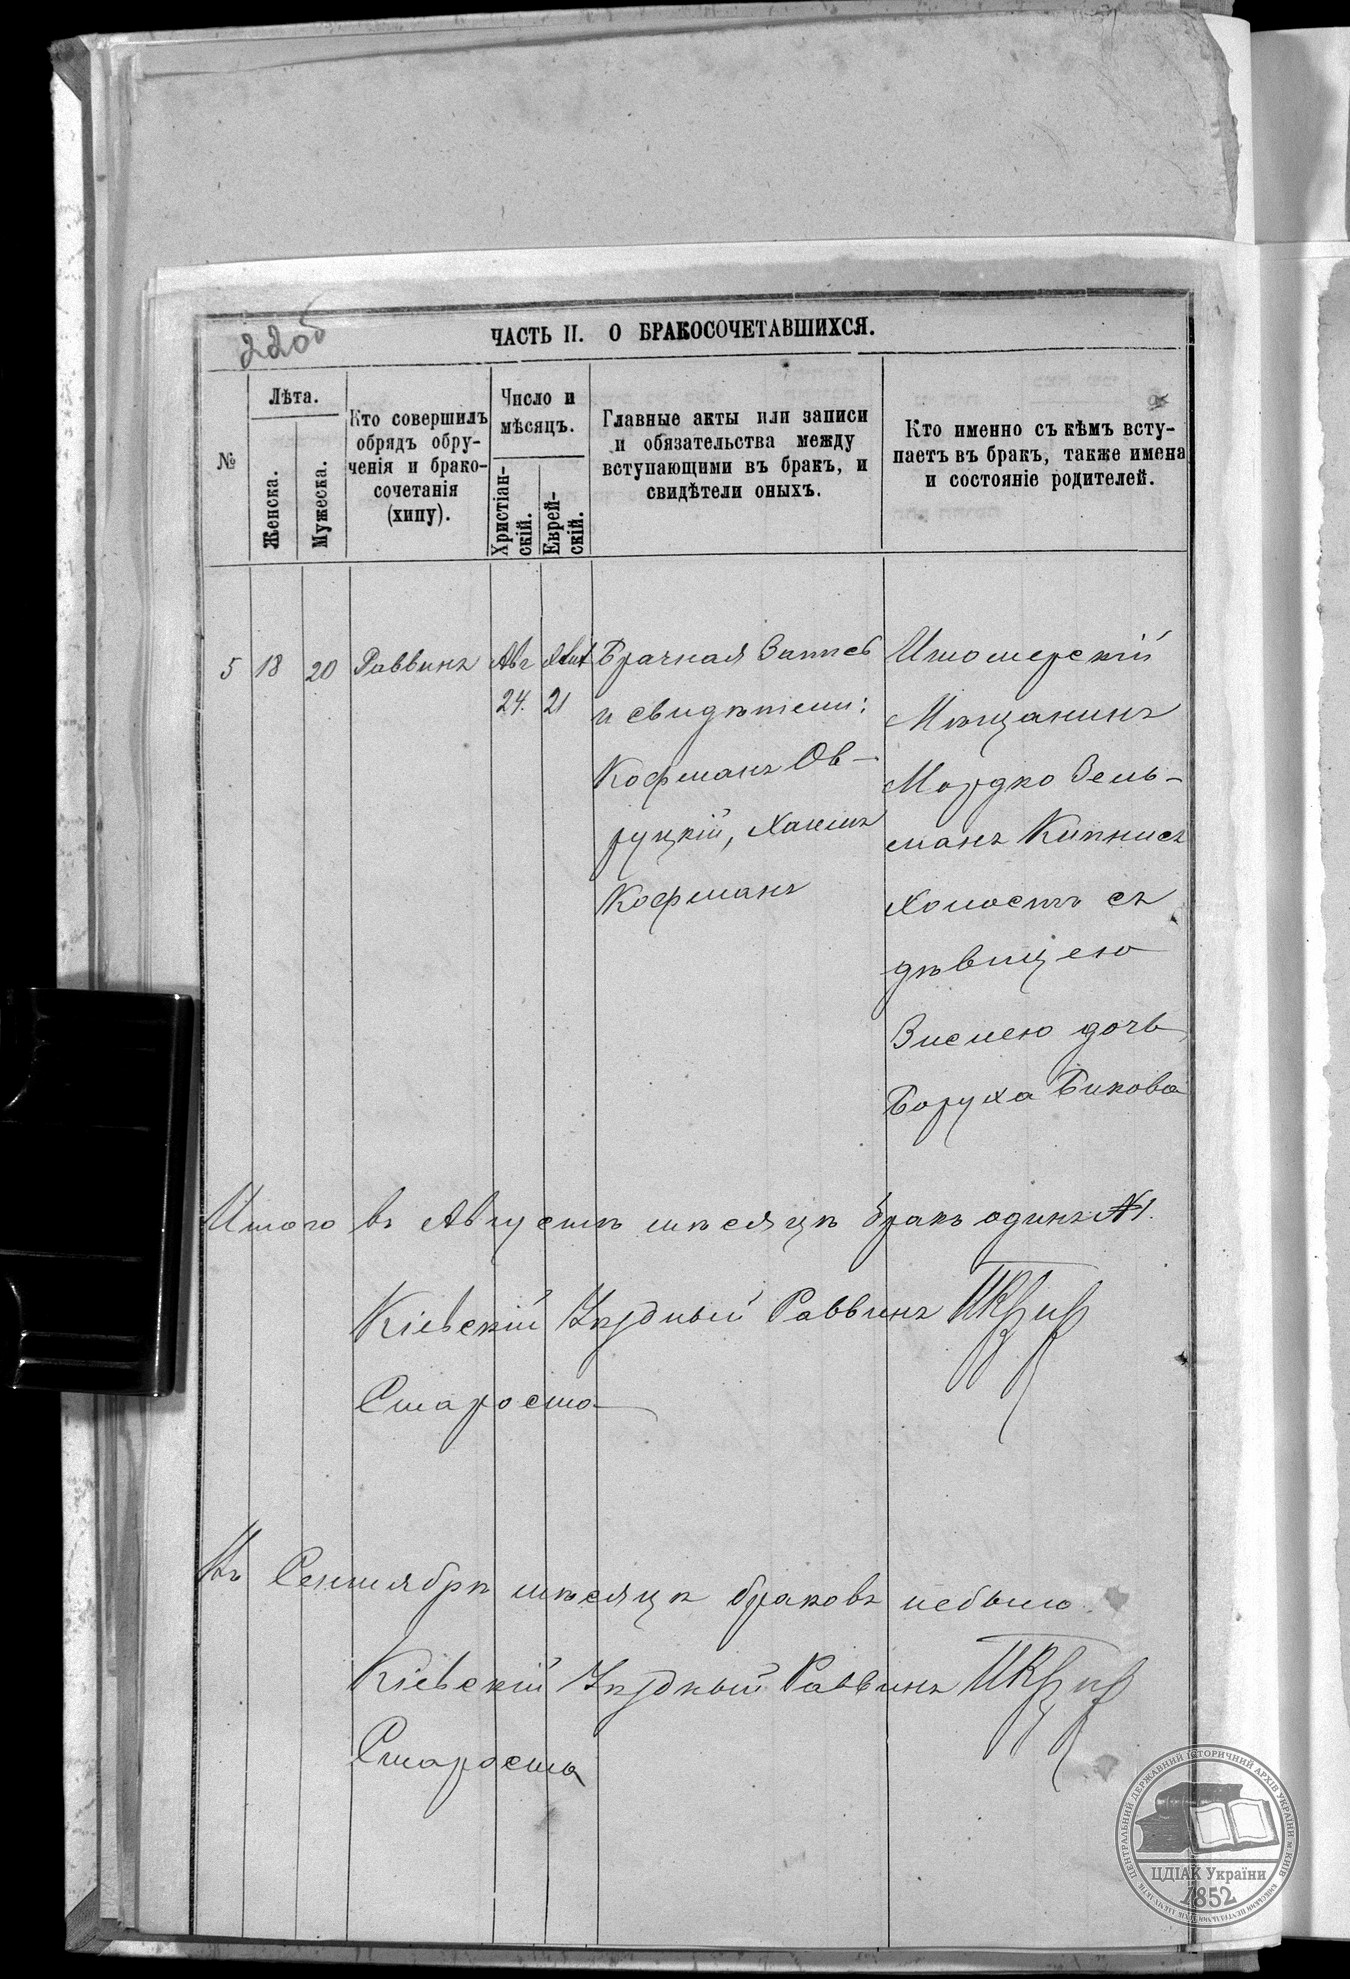 220б
ЧАСТЬ II. О БРАКОСОЧЕТАВШИХСЯ.
№
Лѣта.
Женска.
Мужеска.
Кто совершилъ
обрядъ обру-
ченія и брако-
сочетанія
(хипу).
Число и
мѣсяцъ.
Христіан-
скій.
Еврей-
скій.
Главные акты или записи
и обязательства между
вступающими въ бракъ, и
свидѣтели оныхъ.
Кто именно съ кѣмъ всту-
паетъ въ бракъ, также имена
и состояніе родителей.
5 18 20 Раввинъ
Авг
24.
21
Брачная Запись
и свидѣтели:
Кофманъ Ов-
руцкій, Хаимъ
Кофманъ
Мѣщанинъ
Мордко Зель-
манъ Кипнисъ
холостъ съ
дѣвицею
дочь
Боруха Бикова
Итого въ Августѣ мѣсяцѣ бракъ одинъ №1.
Кіевскій Уѣздный Раввинъ
Староста
Въ Сентябрѣ мѣсяцѣ браковъ небыло
Кіевскій Уѣздный Раввинъ
Староста
ЦЕНТРАЛЬНИЙ ДЕРЖАВНИЙ ІСТОРИЧНИЙ АРХІВ УКРАЇНИ м.КИЇВ
ЦДІАК України
1852